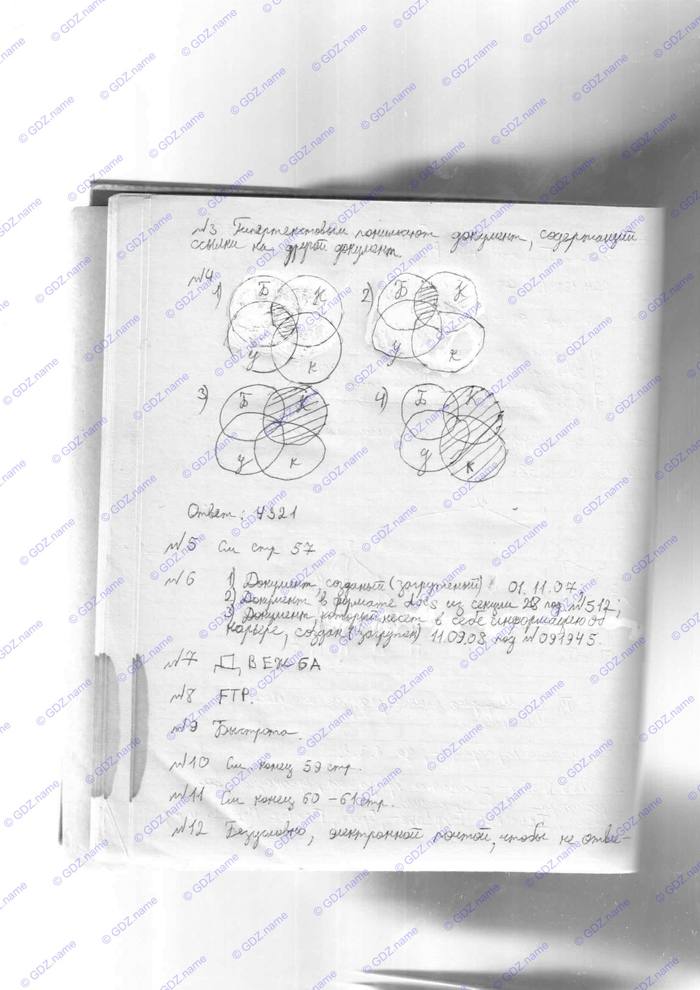 №3 Гипертекстовым понимают документ, содержащий
ссылки на другой документ
№4
1) Б К У К
2) Б К У К
3) Б К У К
4) Б К У К
Ответ: 4321
№5 См стр 57
№6 1) Документ, созданый (загруженый) 01.11.07;
2) Документ в формате docs из секции 28 под №517;
3) Документ, который несет в себе информацию о
карьере, создан (загружен) 11.09.08 под №091945.
№7 Д, В Е Ж Б А
№8 FTP.
№9 Быстрота.
№10 См. конец 59 стр.
№11 См конец 60-61 стр.
№12 Безусловно, электронной почтой, чтобы не отвле-
© GDZ.name